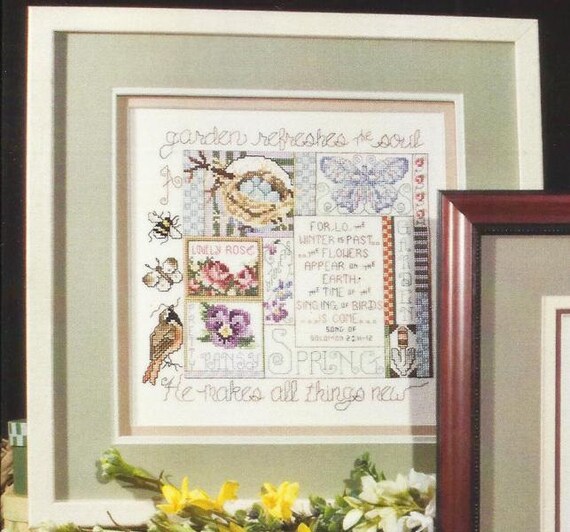 A garden refreshes the soul
LOVELY ROSE
FOR, LO, THE
WINTER IS PAST..
..THE FLOWERS
APPEAR ON THE
EARTH;
THE TIME OF THE
SINGING OF BIRDS
..IS COME....
SONG OF
SOLOMON 2:11-12
GARDEN
PANSY
SPRING
He makes all things new